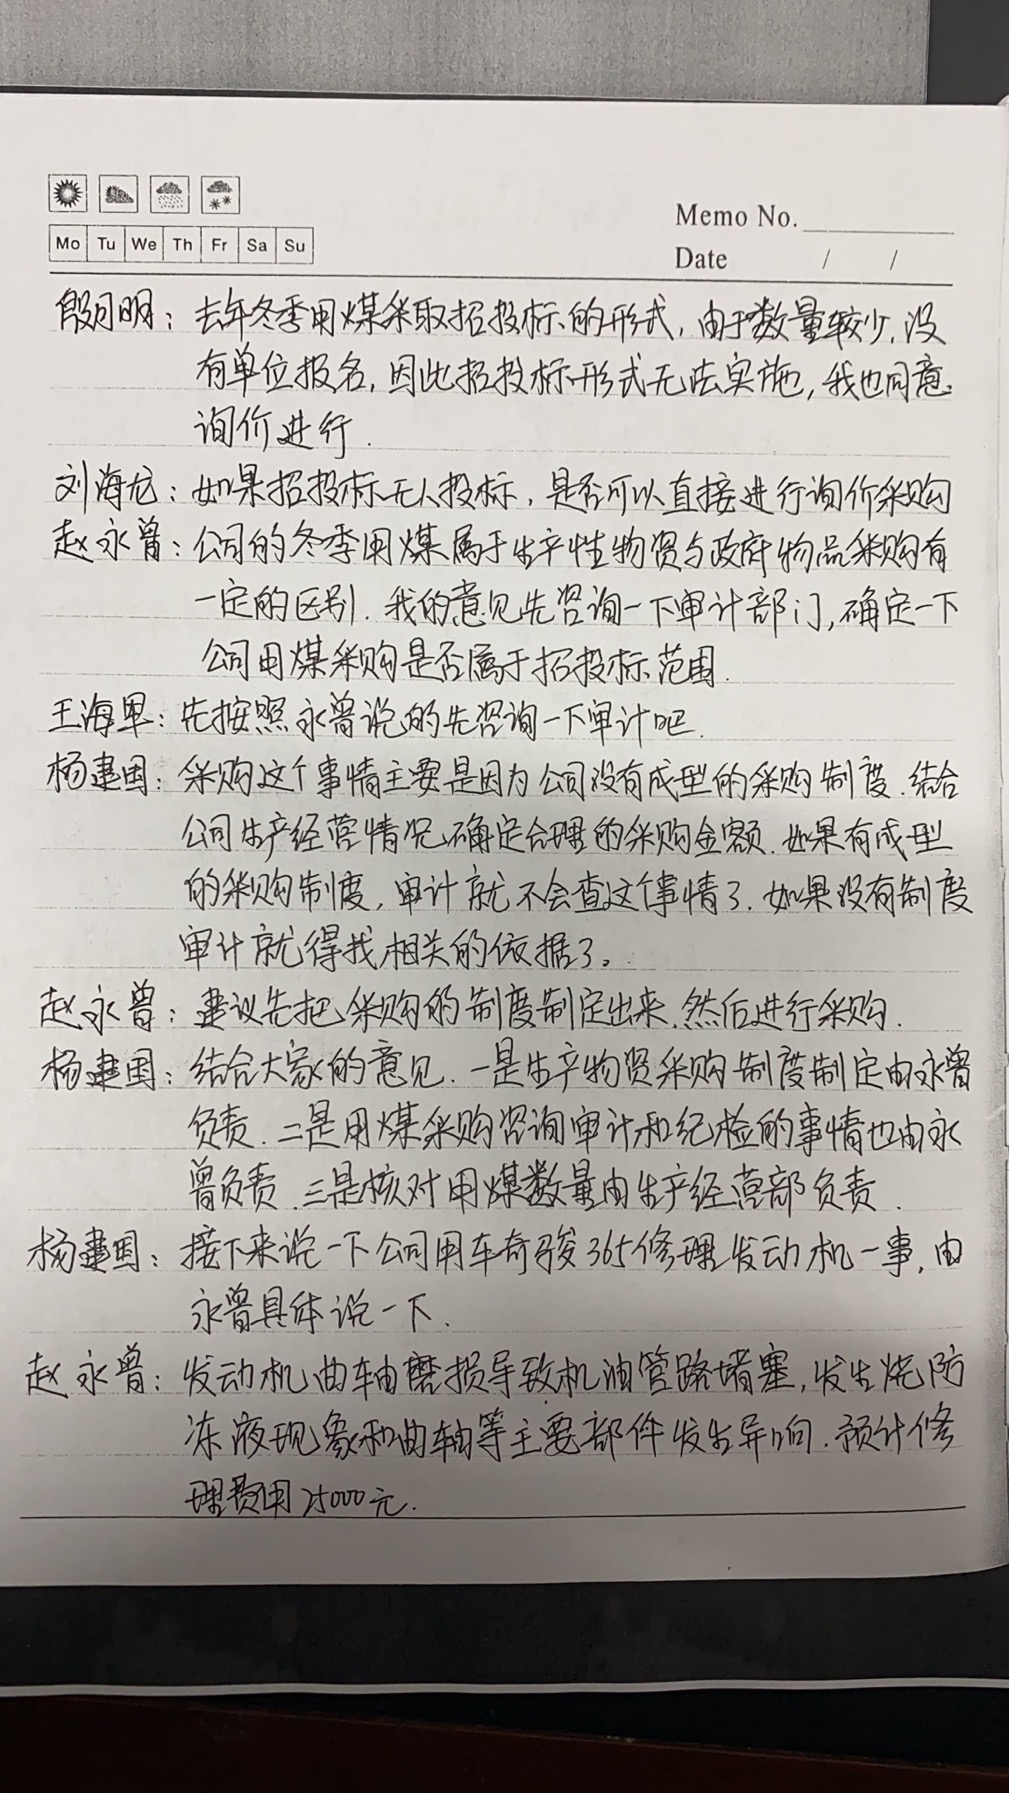 Memo No.
Mo Tu We Th Fr Sa Su
Date / /
殷月明：去年冬季用煤采取招投标的形式，由于数量较少，没
有单位报名，因此招投标形式无法实施，我也同意
询价进行.
刘海龙：如果招投标无人投标，是否可以直接进行询价采购
赵永曾：公司的冬季用煤属于生产性物资与政府物品采购有
一定的区别.我的意见先咨询一下审计部门，确定一下
公司用煤采购是否属于招投标范围.
王海军：先按照永曾说的先咨询一下审计吧.
杨建国：采购这个事情主要是因为公司没有成型的采购制度.结合
公司生产经营情况确定合理的采购金额.如果有成型
的采购制度，审计就不会查这个事情了.如果没有制度
审计就得找相关的依据了。
赵永曾：建议先把采购的制度制定出来.然后进行采购.
杨建国：结合大家的意见.一是生产物资采购制度制定由永曾
负责.二是用煤采购咨询审计和纪检的事情也由永
曾负责.三是核对用煤数量由生产经营部负责.
杨建国：接下来说一下公司用车奇骏365修理发动机一事，由
永曾具体说一下.
赵永曾：发动机曲轴磨损导致机油管路堵塞，发生烧防
冻液现象和曲轴等主要部件发生异响.预计修
理费用25000元.